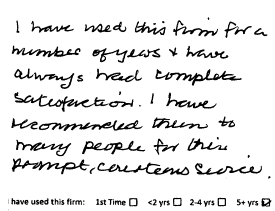 I have used this firm for a
number of years & have
always had complete
satisfaction. I have
recommended them to
many people for this
prompt, courteous service.
I have used this firm: 1st Time ☐ <2 yrs ☐ 2-4 yrs ☐ 5+ yrs ☑